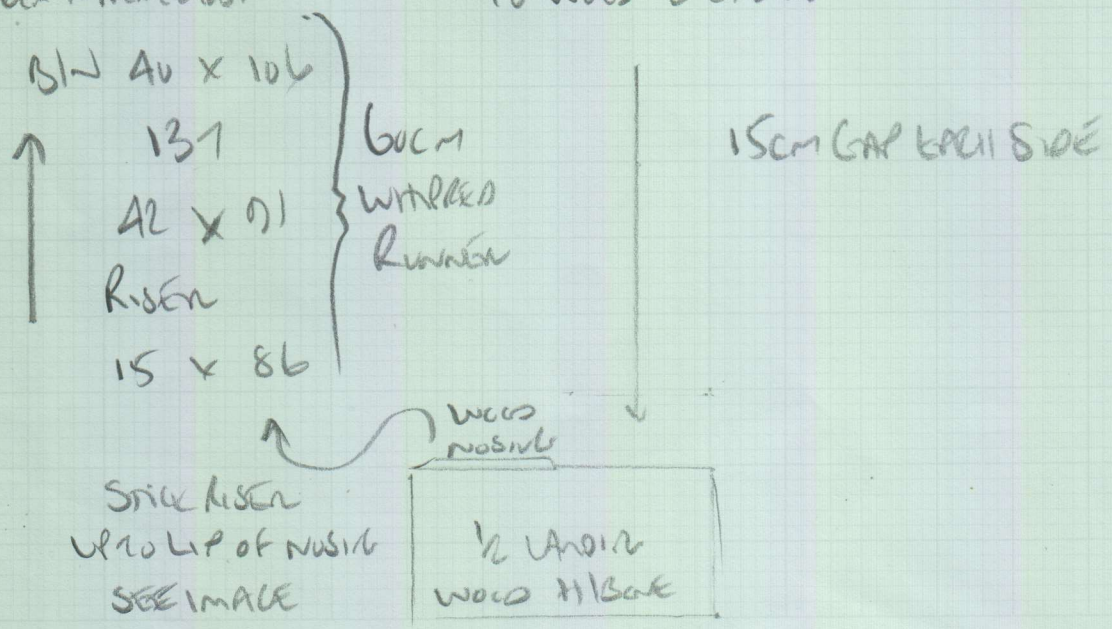 BIN 40 X 106
137
42 X 91
RISER
15 X 86
60CM
WHIPPED
RUNNER
15CM GAP EACH SIDE
WOOD
NOSING
STICK RISER
UP TO LIP OF NOSING
SEE IMAGE
1/2 LANDING
WOOD H/BONE